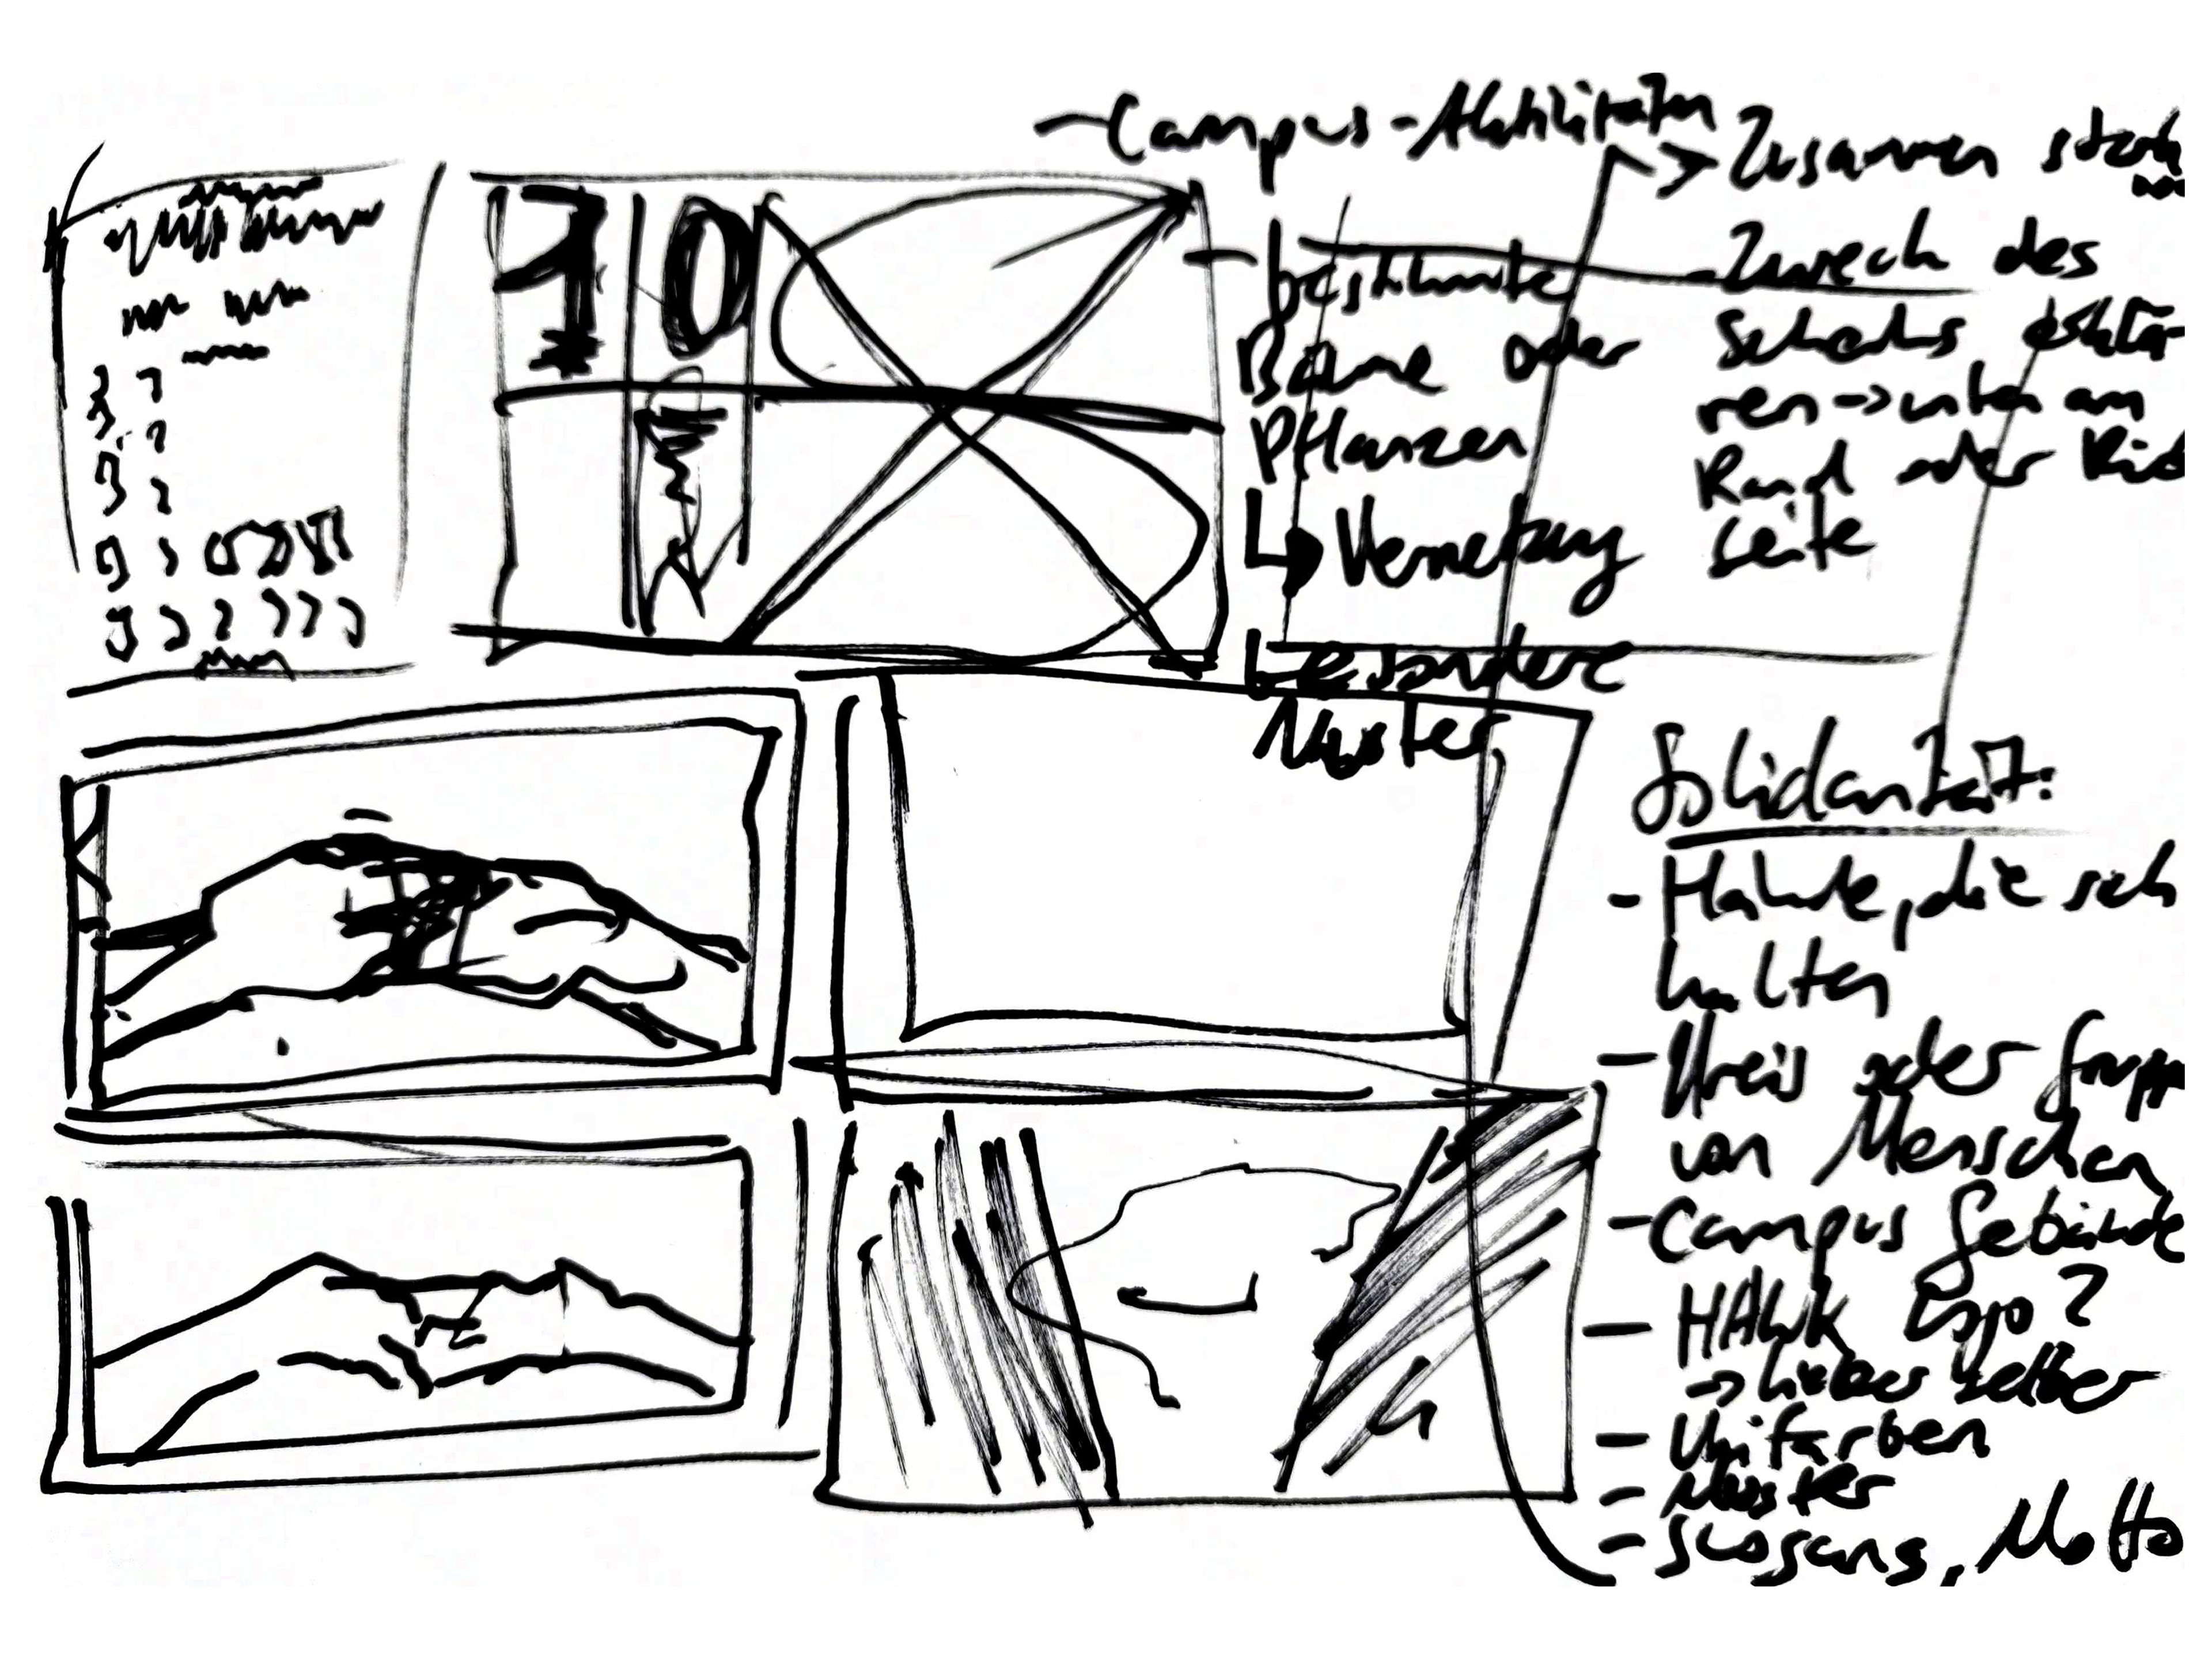 10
- Campus-Aktivitäten
-> Zusammen stark
- bestimmte
Bäume oder
Pflanzen
↳ Vernetzung
besondere
Muster
- Zweck des
Schecks erklä-
ren -> unten am
Rand oder Rück
seite
Solidarität:
- Hände, die sich
halten
- Kreis oder Grupp
von Menschen
- Campus Gebäude
- HAWK Logo?
-> lieber selber
- Unifarben
- Muster
- Slogans, Motto